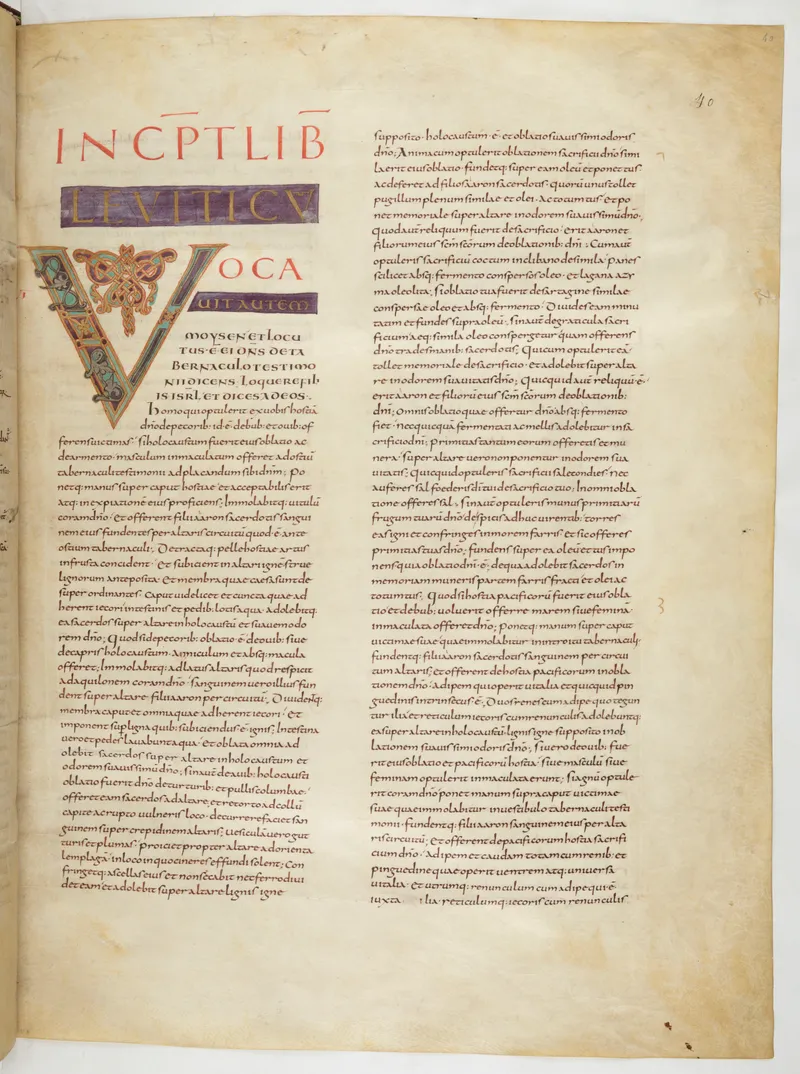 40
INCPT LIB
LEVITICV
VOCA
UIT AUTEM
MOYSEN ET LOCU
TUS·E EI DNS DE TA
BERNACULO TESTIMO
NII DICENS· LOQUERE FILI
IS ISRL· ET DICES AD EOS·
homo qui optulerit ex uobis hostiā
dn̄o de pecorib; id ē de bub; et ouib; of
ferens uictimas· si holocaustum fuerit eius oblatio ac
de armento· masculum inmaculatum offeret ad ostiū
tabernaculi testimonii ad placandum sibi dn̄m; Po
netq; manus super caput hostiae et acceptabilis erit
atq; in expiationē eius proficiens; Immolabitq; uitulū
coram dn̄o· Et offerent filii aaron sacerdotis sangui
nem eius fundentes per altaris circuitū quod ē ante
ostium tabernaculi; Detractaq; pelle hostiae artus
in frusta concident· Et subicient in altari ignē strue
lignorum ante posita· Et membra quae caesa sunt de
super ordinantes· Caput uidelicet et cuncta quae ad
herent iecori· intestinis et pedib; lotis aqua· adolebitq;
ea sacerdos super altare in holocaustū et suaue modo
rem dn̄o; Quod si de pecorib; oblatio ē de ouib; siue
de capris holocaustum· Agniculum et absq; macula
offeret; Immolabitq; ad latus altaris quod respicit
ad aquilonem coram dn̄o· Sanguinem uero illius fun
dent super altare· filii aaron per circuitū; Diuidentq;
membra caput et omnia quae adherent iecori· Et
imponent sup ligna quib; subiciendus ē ignis; Intestina
uero et pedes lauabunt aqua· Et oblata omnia ad
olebit sacerdos super altare in holocaustum et
odorem suauissimū dn̄o; Sin aut de auib; holocausti
oblatio fuerit dn̄o de turturib; et pullis columbae·
offeret eam sacerdos ad altare· et retorto ad collū
capite ac rupto uulneris loco· decurrere faciet san
guinem super crepidinem altaris; Uesiculā uero gut
turis et plumas· proiciet prope altare ad orienta
lem plagā· in loco in quo cineres effundi solent; Con
fringetq; ascellas eius et non secabit nec ferro diui
det eam et adolebit super altare lignis igne
supposito· holocaustum· ē· et oblatio suauissimi odoris
dn̄o; Anima cum optulerit oblationem sacrificii dn̄o simi
la erit eius oblatio· fundetq; super eam oleū et ponet tus·
ac deferet ad filios aaron sacerdotis· quorū unus tollet
pugillum plenum similae et olei· Ac totum tus· et po
net memoriale super altare in odorem suauissimū dn̄o·
Quod aut reliquum fuerit de sacrificio· erit aaron et
filiorum eius scm scorum de oblationib; dni; Cum aut
optuleris sacrificiū coctum in clibano de simila· panes
scilicet absq; fermento consperso s oleo· et lagana azy
ma oleo lita; Si oblatio tua fuerit de sartagine similae
conspersae oleo et absq; fermento· Diuides eam minu
tatim et fundes supra oleū; Sin aut de graticula sacri
ficium aeq; simila oleo conspergetur quam offerens
dn̄o trades manib; sacerdotis; Qui cum optulerit eā·
tollet memoriale de sacrificio· et adolebit super alta
re in odorem suauitatis dn̄o; Quicquid aut reliquū·ē·
erit aaron et filiorū eius scm scorum de oblationib;
dni; Omnis oblatio quae offertur dn̄o absq; fermento
fiet· nec quicquā fermenti ac mellis adolebitur in sa
crificio dni; primitias tantum eorum offeretis et mu
nera· Super altare uero non ponentur in odorem sua
uitatis; Quicquid optuleris sacrificii sale condies· nec
auferes sal foederis di tui de sacrificio tuo; In omni obla
tione offeres sal; Sin aut optuleris munus primitiarū
frugum tuarū dn̄o· de spicis adhuc uirentib; torres
eas igni et confringes in morem farris et sic offeres
primitias tuas dn̄o; fundens super ea oleū et tus impo
nens quia oblatio dni·ē; de qua adolebit sacerdos in
memoriam muneris partem farris fracti et olei ac
totum tus; Quod si hostia pacificorū fuerit eius obla
tio et de bub; uoluerit offerre marem siue feminā·
inmaculata offeret dn̄o; Ponetq; manum super caput
uictimae suae quae immolabitur in introitu tabernaculi;
fundentq; filii aaron sacerdotis sanguinem per circui
tum altaris; et offerent de hostia pacificorum in obla
tionem dn̄o· Adipem qui operit uitalia et quicquid pin
guedinis intrinsecus ē; Duos renes cum adipe quo tegun
tur ilia· et reticulum iecoris cum renunculis adolebuntq;
ea super altare in holocaustū· lignis igne supposito in ob
lationem suauissimi odoris dn̄o; Si uero de ouib; fue
rit eius oblatio et pacificorū hostia· siue masculū siue
feminam optulerit inmaculata erunt; Si agnū optule
rit coram dn̄o ponet manum supra caput uictimae
suae quae immolabitur in uestibulo tabernaculi testi
monii· fundentq; filii aaron sanguinem eius per alta
ris circuitū; Et offerent de pacificorum hostia sacrifi
cium dn̄o· Adipem et caudam totam cum renib; et
pinguedine quae operit uentrem atq; uniuersa
uitalia· Et utrumq; renunculum cum adipe qui ē·
iuxta ilia· reticulumq; iecoris cum renunculis